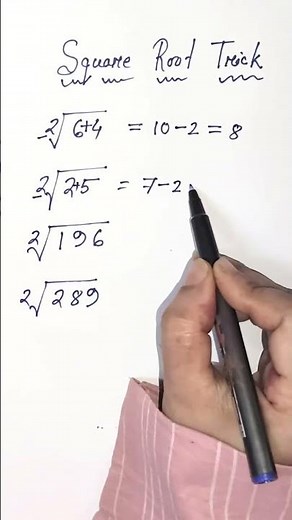 Square Root Trick
²√6+4 = 10-2 = 8
²√2+5 = 7-2
²√196
²√289